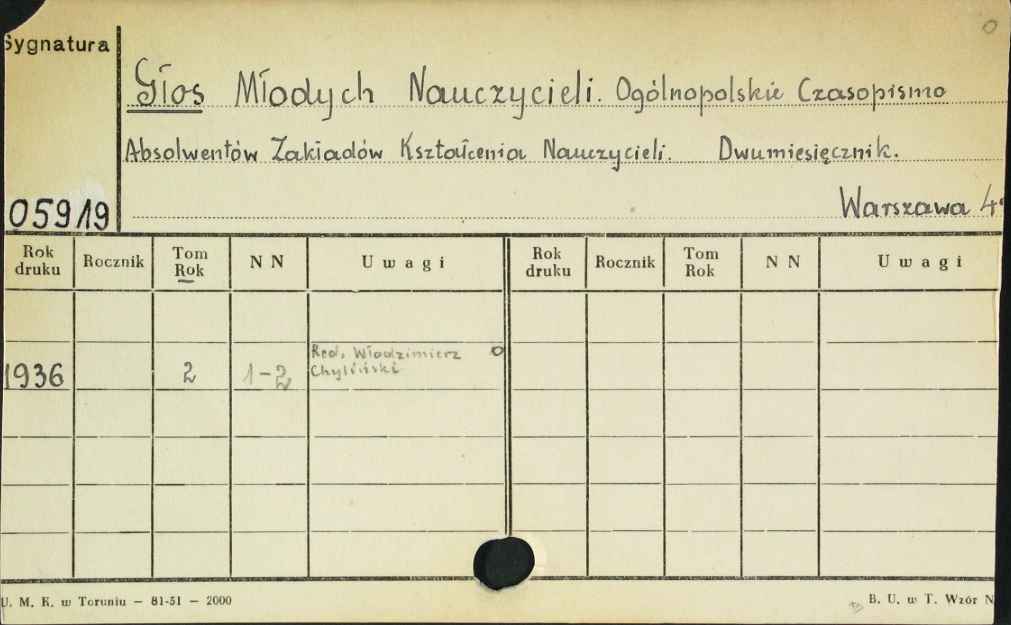 Sygnatura
Głos Młodych Nauczycieli. Ogólnopolskie Czasopismo
Absolwentów Zakładów Kształcenia Nauczycieli. Dwumiesięcznik.
05919
Warszawa 4°
Rok druku Rocznik Tom Rok N N Uwagi Rok druku Rocznik Tom Rok N N Uwagi
1936 2 1-2 Red. Włodzimierz
Chyliński
U. M. K. w Toruniu — 81-51 — 2000
B. U. w T. Wzór N